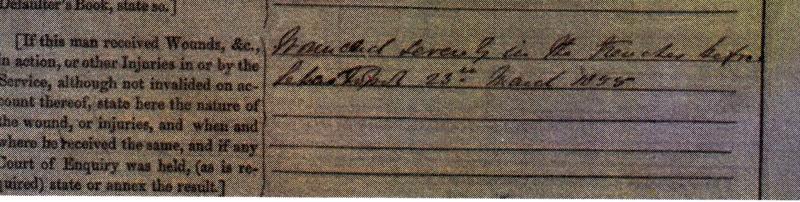 Defaulter's Book, state so.]
[If this man received Wounds, &c.,
in action, or other Injuries in or by the
Service, although not invalided on ac-
count thereof, state here the nature of
the wound, or injuries, and when and
where he received the same, and if any
Court of Enquiry was held, (as is re-
quired) state or annex the result.]
Wounded severely in the trenches before
Sebastopol 23rd March 1855